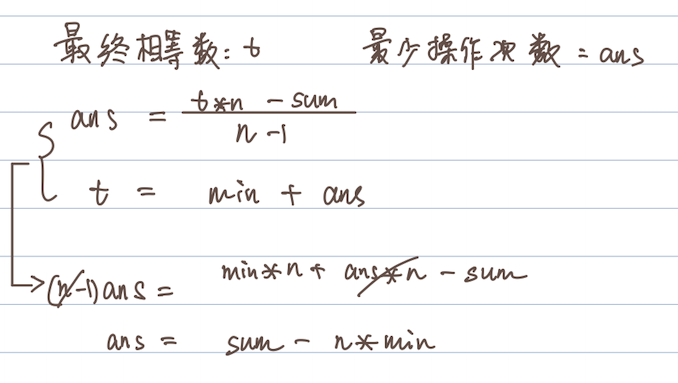 最终相等数: t 最少操作次数 = ans
ans = (t*n - sum) / (n-1)
t = min + ans
(n-1)ans = min*n + ans*n - sum
ans = sum - n*min